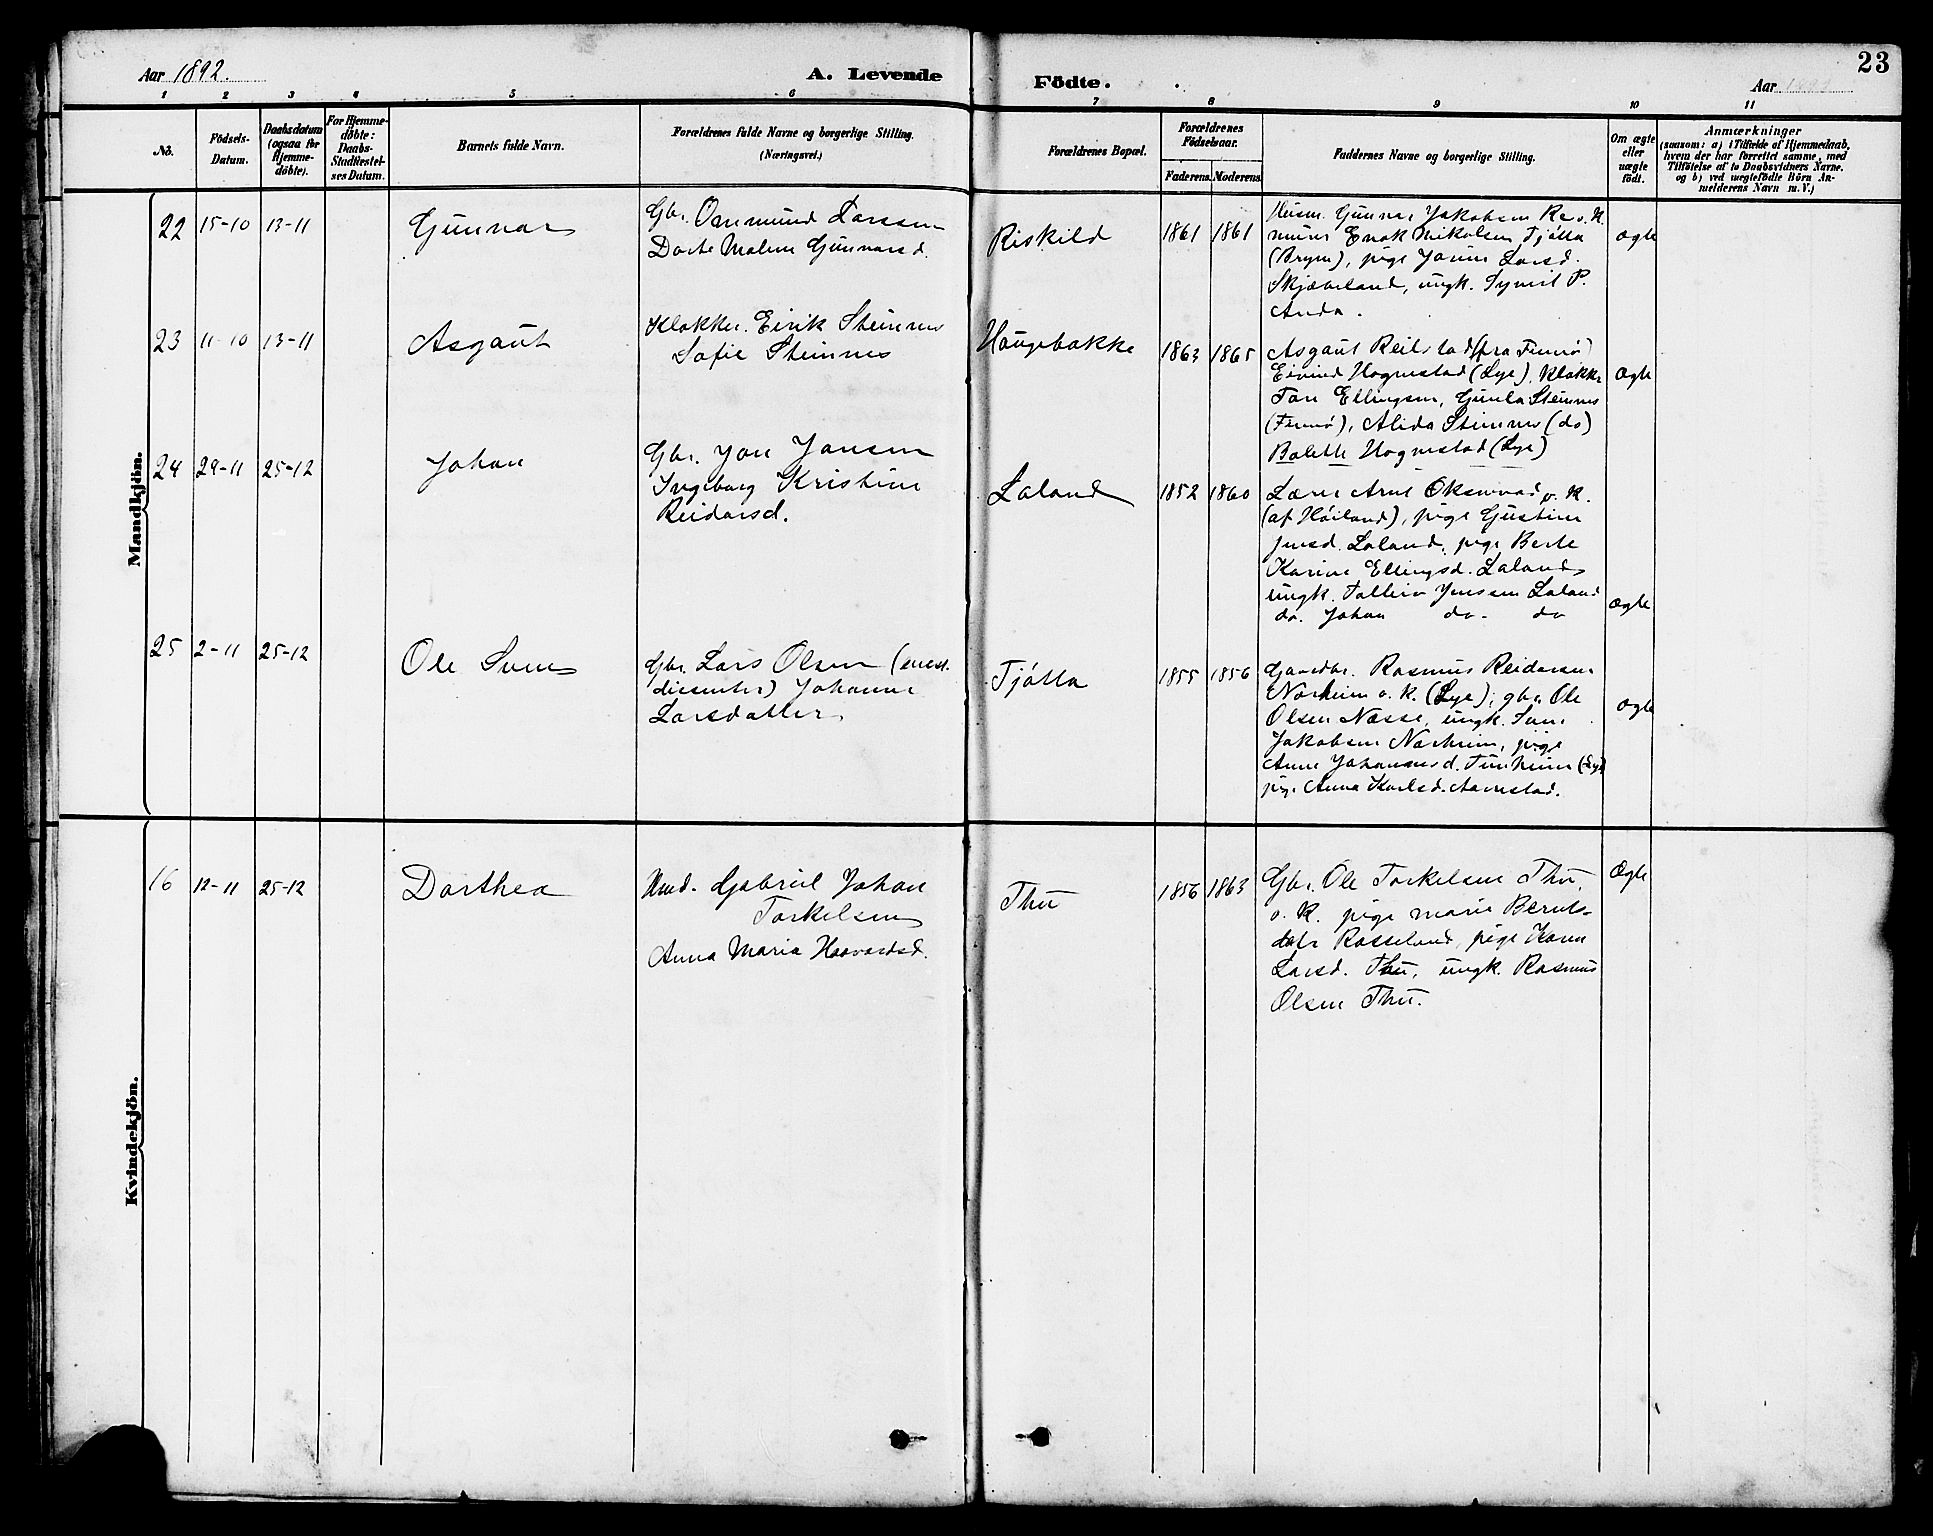 23
Aar 1892.
A. Levende Födte.
Aar
1 2 3 4 5 6 7 8 9 10 11
No.
Födsels-Datum.
Daabsdatum (ogsaa for Hjemme-döbte).
For Hjemme-döbte: Daabs-Stadfæstel-ses Datum.
Barnets fulde Navn.
Forældrenes fulde Navne og borgerlige Stilling.
(Næringsvei.)
Forældrenes Bopæl.
Forældrenes Födselsaar.
Faderens. Moderens.
Faddernes Navne og borgerlige Stilling.
Om ægte eller uægte födt.
Anmærkninger
(saasom: a) i Tilfælde af Hjemmedaab,
hvem der har forrettet samme, med
Tilföielse af to Daabsvidners Navne.
og b) ved uægtefödte Börn An-
melderens Navn m. V.)
Mandkjön.
22 15-10 13-11 Gunnar
Gbr. Osmund Larssen
Dorte Malene Gunnarsd.
Riskild 1861 1861
Husm. Gunnar Jakobsen Re o. K.
murer Enok Nikolsen Tjötta
(Bryne), pige Larsd.
Skjæveland, ungk. P.
Anda.
ægte
23 11-10 13-11 Asgaut
Klokker. Eirik Steinnes
Sofie Steinnes
Haugebakke 1863 1865
Asgaut Reilstad (fra Finnö)
Eivind Hognestad (Lye), Klokker
Tore Ellingsen, Gunla Steinnes
(Finnö), Alida Steinnes (do)
Bolette Hognestad (Lye)
ægte
24 29-11 25-12 Johan
Gbr. Jon Jonsen
Ingeborg Kristine
Reidarsd.
Laland 1852 1860
Lærer Arne Oksnevad o. K.
(af Höiland), pige Gustine
Jonsd. Laland, pige Berte
Karine Ellingsd. Laland
ungk. Tolleiv Jonsen Laland
do. Johan do- do
ægte
25 2-11 25-12 Ole Sven
Gbr. Lars Olsen (
dissenter) Johanne
Larsdatter
Tjötta 1855 1856
Gaardbr. Rasmus Reidarsen
Norheim o. K. (Lye); gbr. Ole
Olsen Næsse, ungk.
Jakobsen Norheim, pige
Anne Johannesd. Tunheim (Lye)
pige Anna Karlsd. Aarrestad.
ægte
Kvindekjön.
16 12-11 25-12 Dorthea
Hmd. Gabriel Johan
Torkelsen
Anna Maria Haavardsd.
Thu 1856 1863
Gbr. Ole Torkelsen Thu,
o. K. pige Marie Bernts-
datr Rosseland, pige Karen
Larsd. Thu, ungk. Rasmus
Olsen Thu.
Ægte